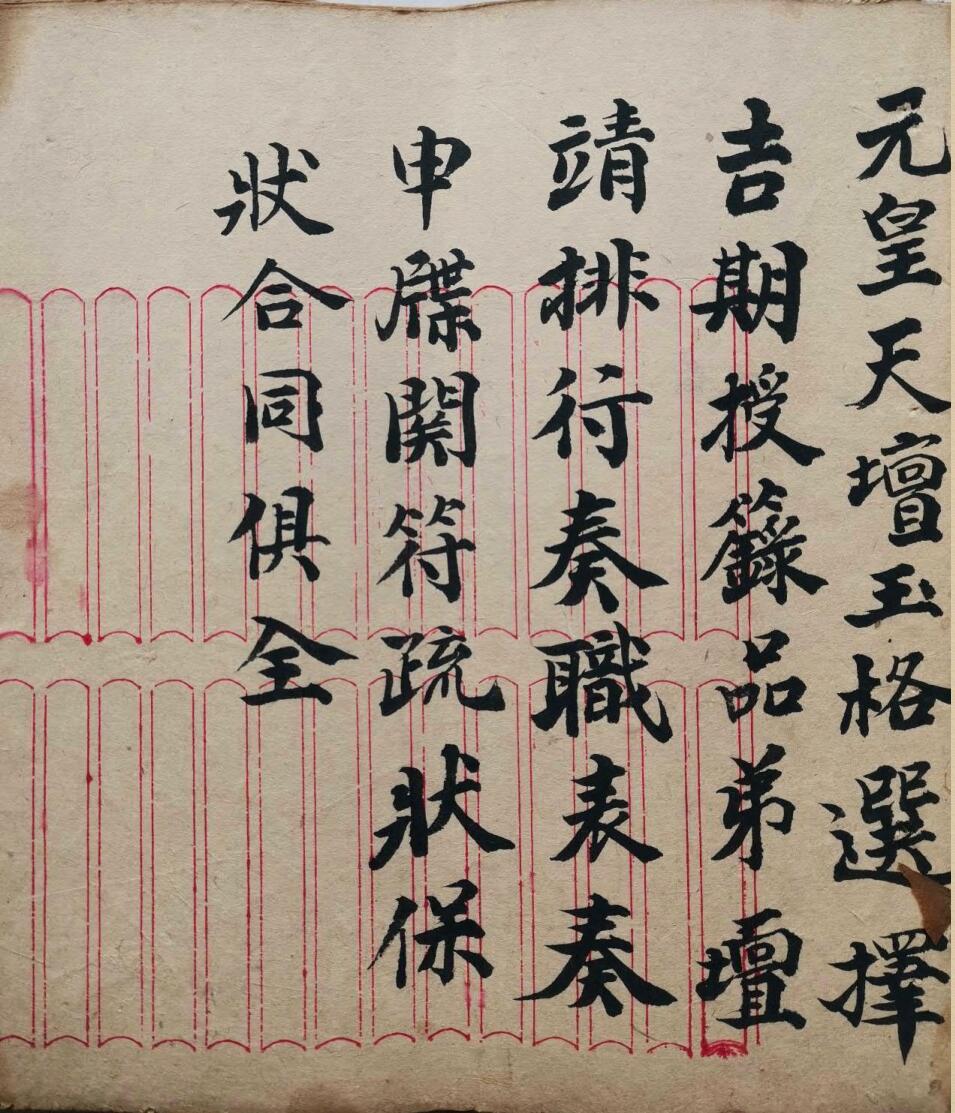 元皇天壇玉格選擇
吉期授籙品弟壇
靖排行奏職表奏
申牒関符疏狀保
狀合同俱全